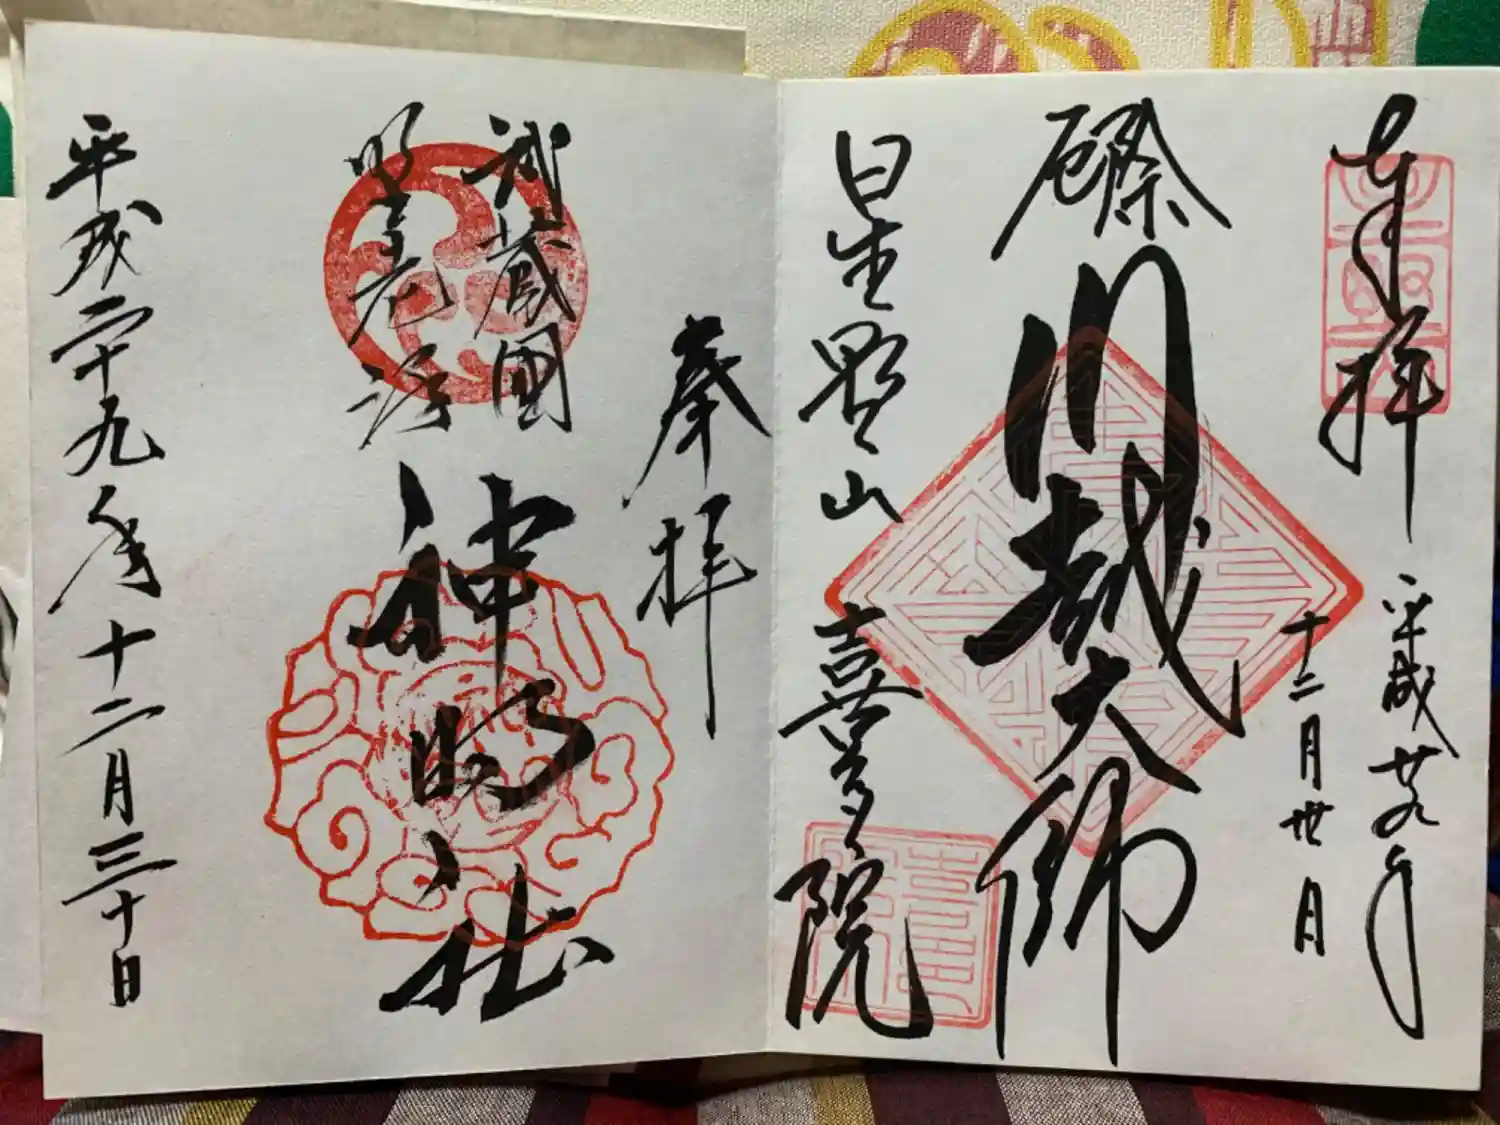 奉拝
平成廿九年
十二月卅日
川越大師
星野山
喜多院
奉拝
武蔵國
神明社
平成二十九年十二月三十日